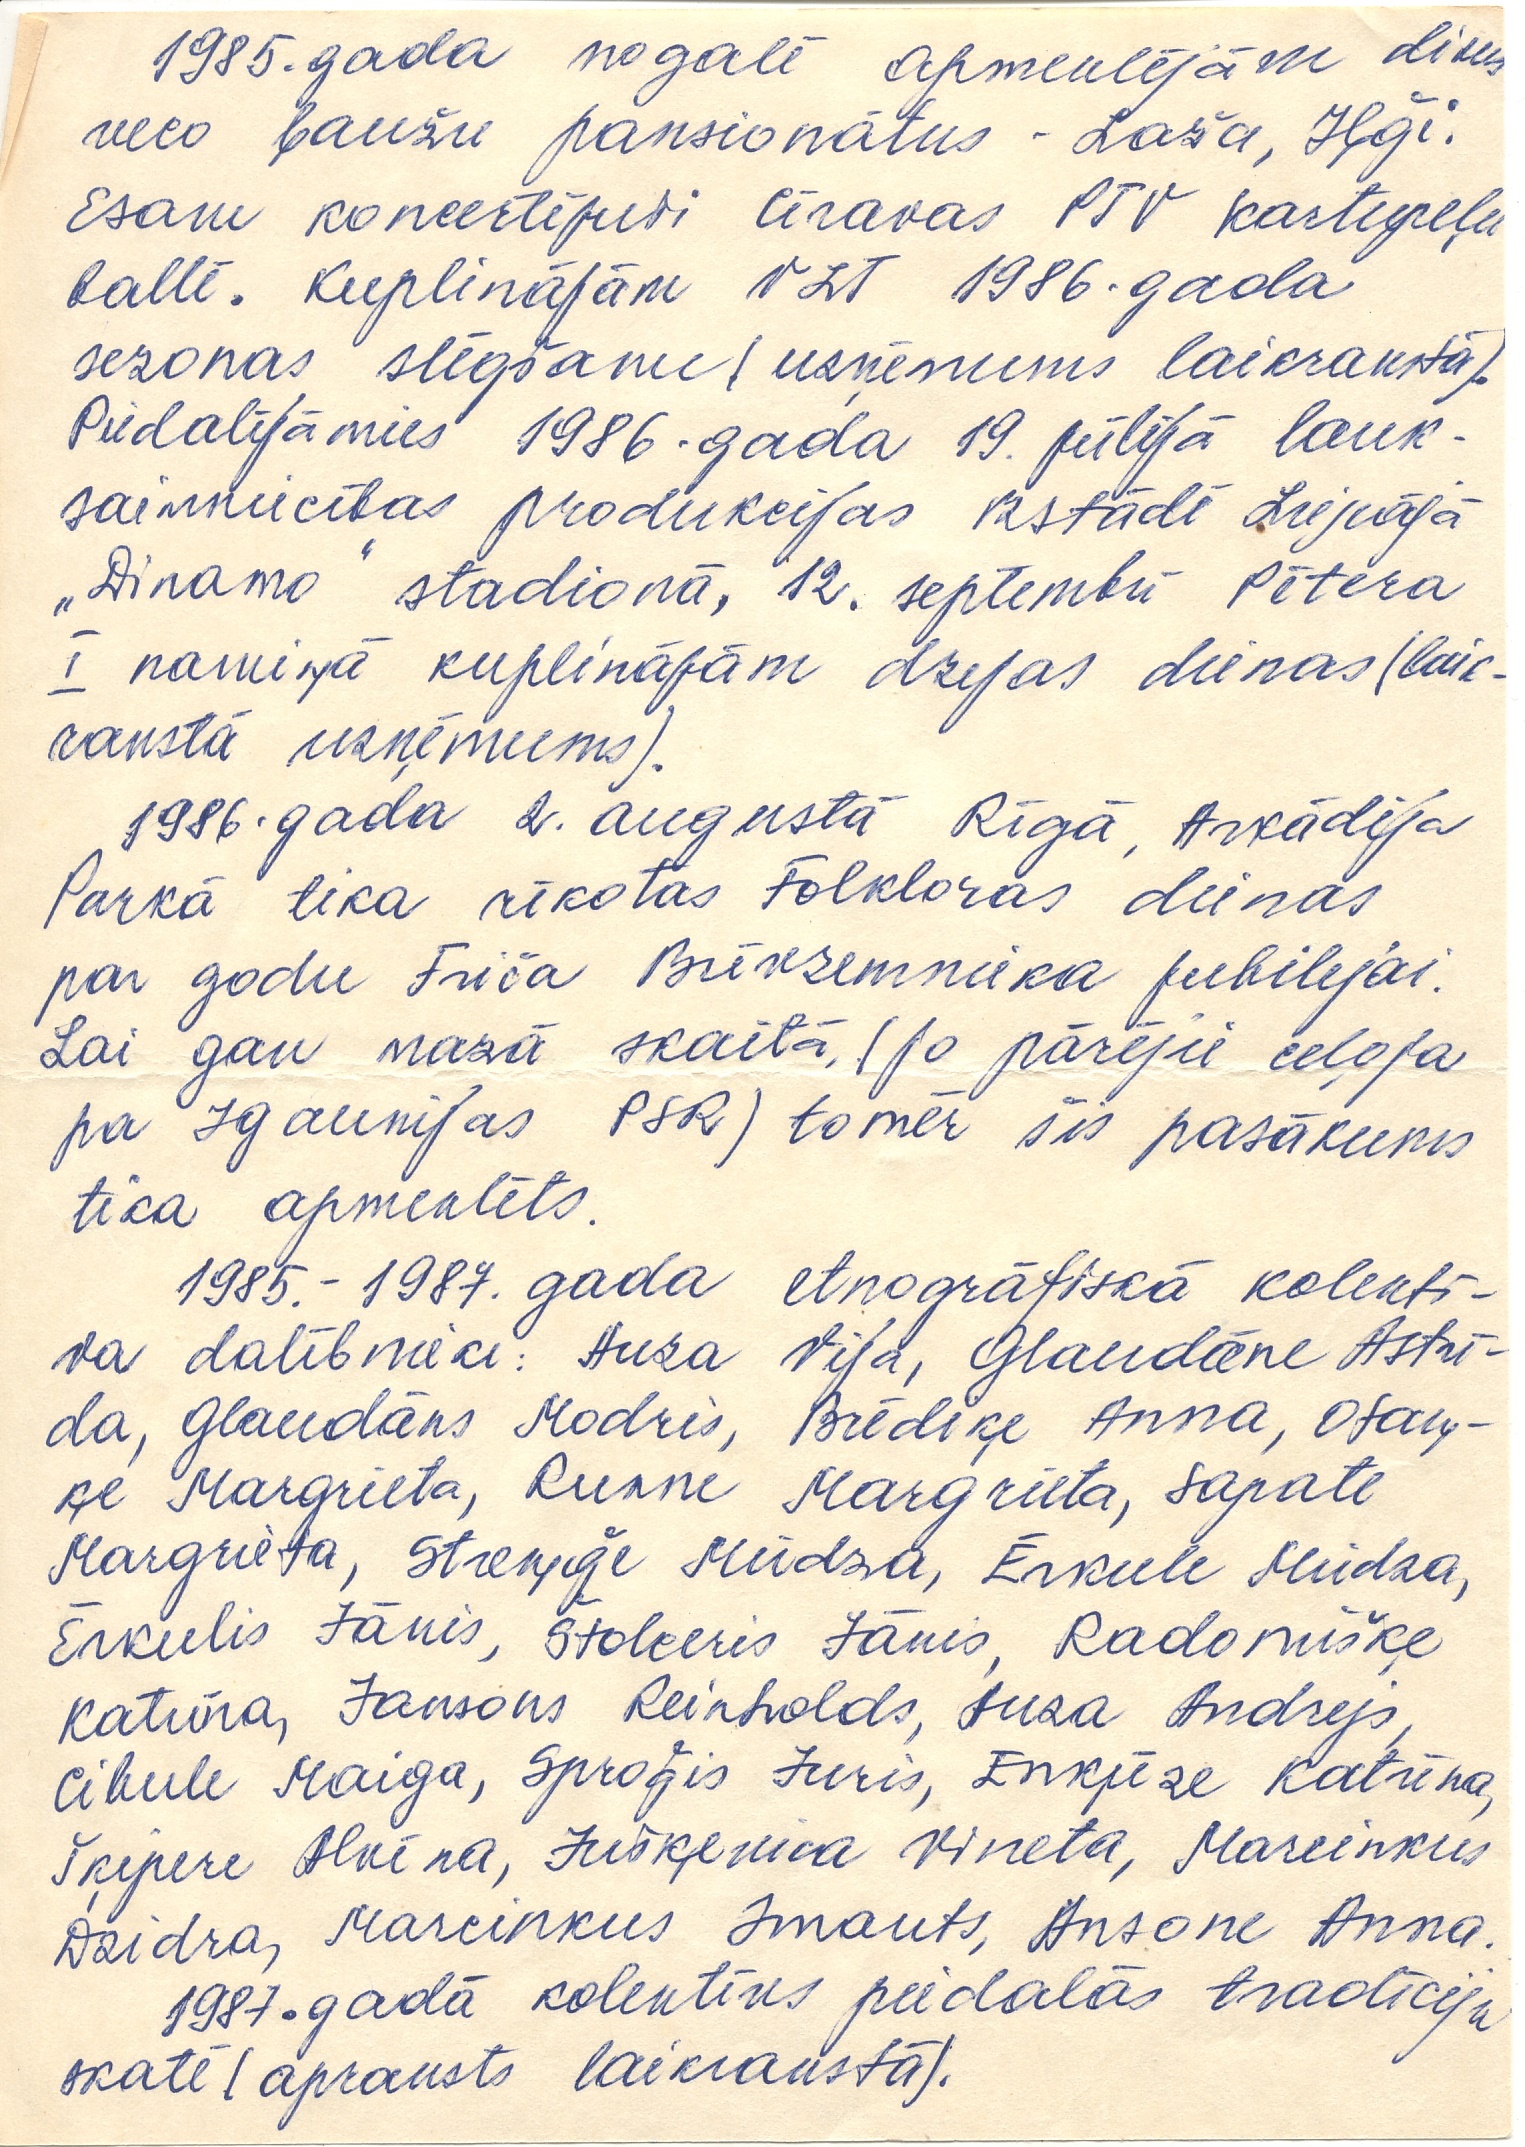 1985. gada nogalē apmeklējām divus
veco ļaužu pansionātus - Laža, Iļģi.
Esam koncertējuši Cīravas PTV kartupeļu
ballē. Kuplinājām VLT 1986. gada
sezonas slēgšanu (uzņēmums laikrakstā).
Piedalījāmies 1986. gada 19. jūlijā lauk-
saimniecības produkcijas izstādē Liepājā
„Dinamo“ stadionā, 12. septembrī Pētera
I namiņā kuplinājām dzejas dienas (laik-
rakstā uzņēmums).
1986. gada 2. augustā Rīgā, Arkādija
Parkā tika rīkotas Folkloras dienas
par godu Friča Brīvzemnieka jubilejai.
Lai gan mazā skaitā, (jo pārējie ceļoja
pa Igaunijas PSR) tomēr šis pasākums
tika apmeklēts.
1985. - 1987. gada etnogrāfiskā kolektī-
va dalībnieki: Auza Vija, Glaudāne Astrī-
da, Glaudāns Modris, Briediķe Anna, Osaņ-
ķe Margrieta, Runne Margrieta, Sapate
Margrieta, Streņģe Mirdza, Ērkule Mirdza,
Ērkulis Jānis, Štolceris Jānis, Radomišķe
Katrīna, Jansons Reinholds, Auza Andrejs,
Cibule Maiga, Sproģis Juris, Enkūze Katrīna,
Šķipere Alvīna, Juškeviča Vineta, Marcinkus
Dzidra, Marcinkus Imants, Ansone Anna.
1987. gadā kolektīvs piedalās tradīciju
skatē (apraksts laikrakstā).